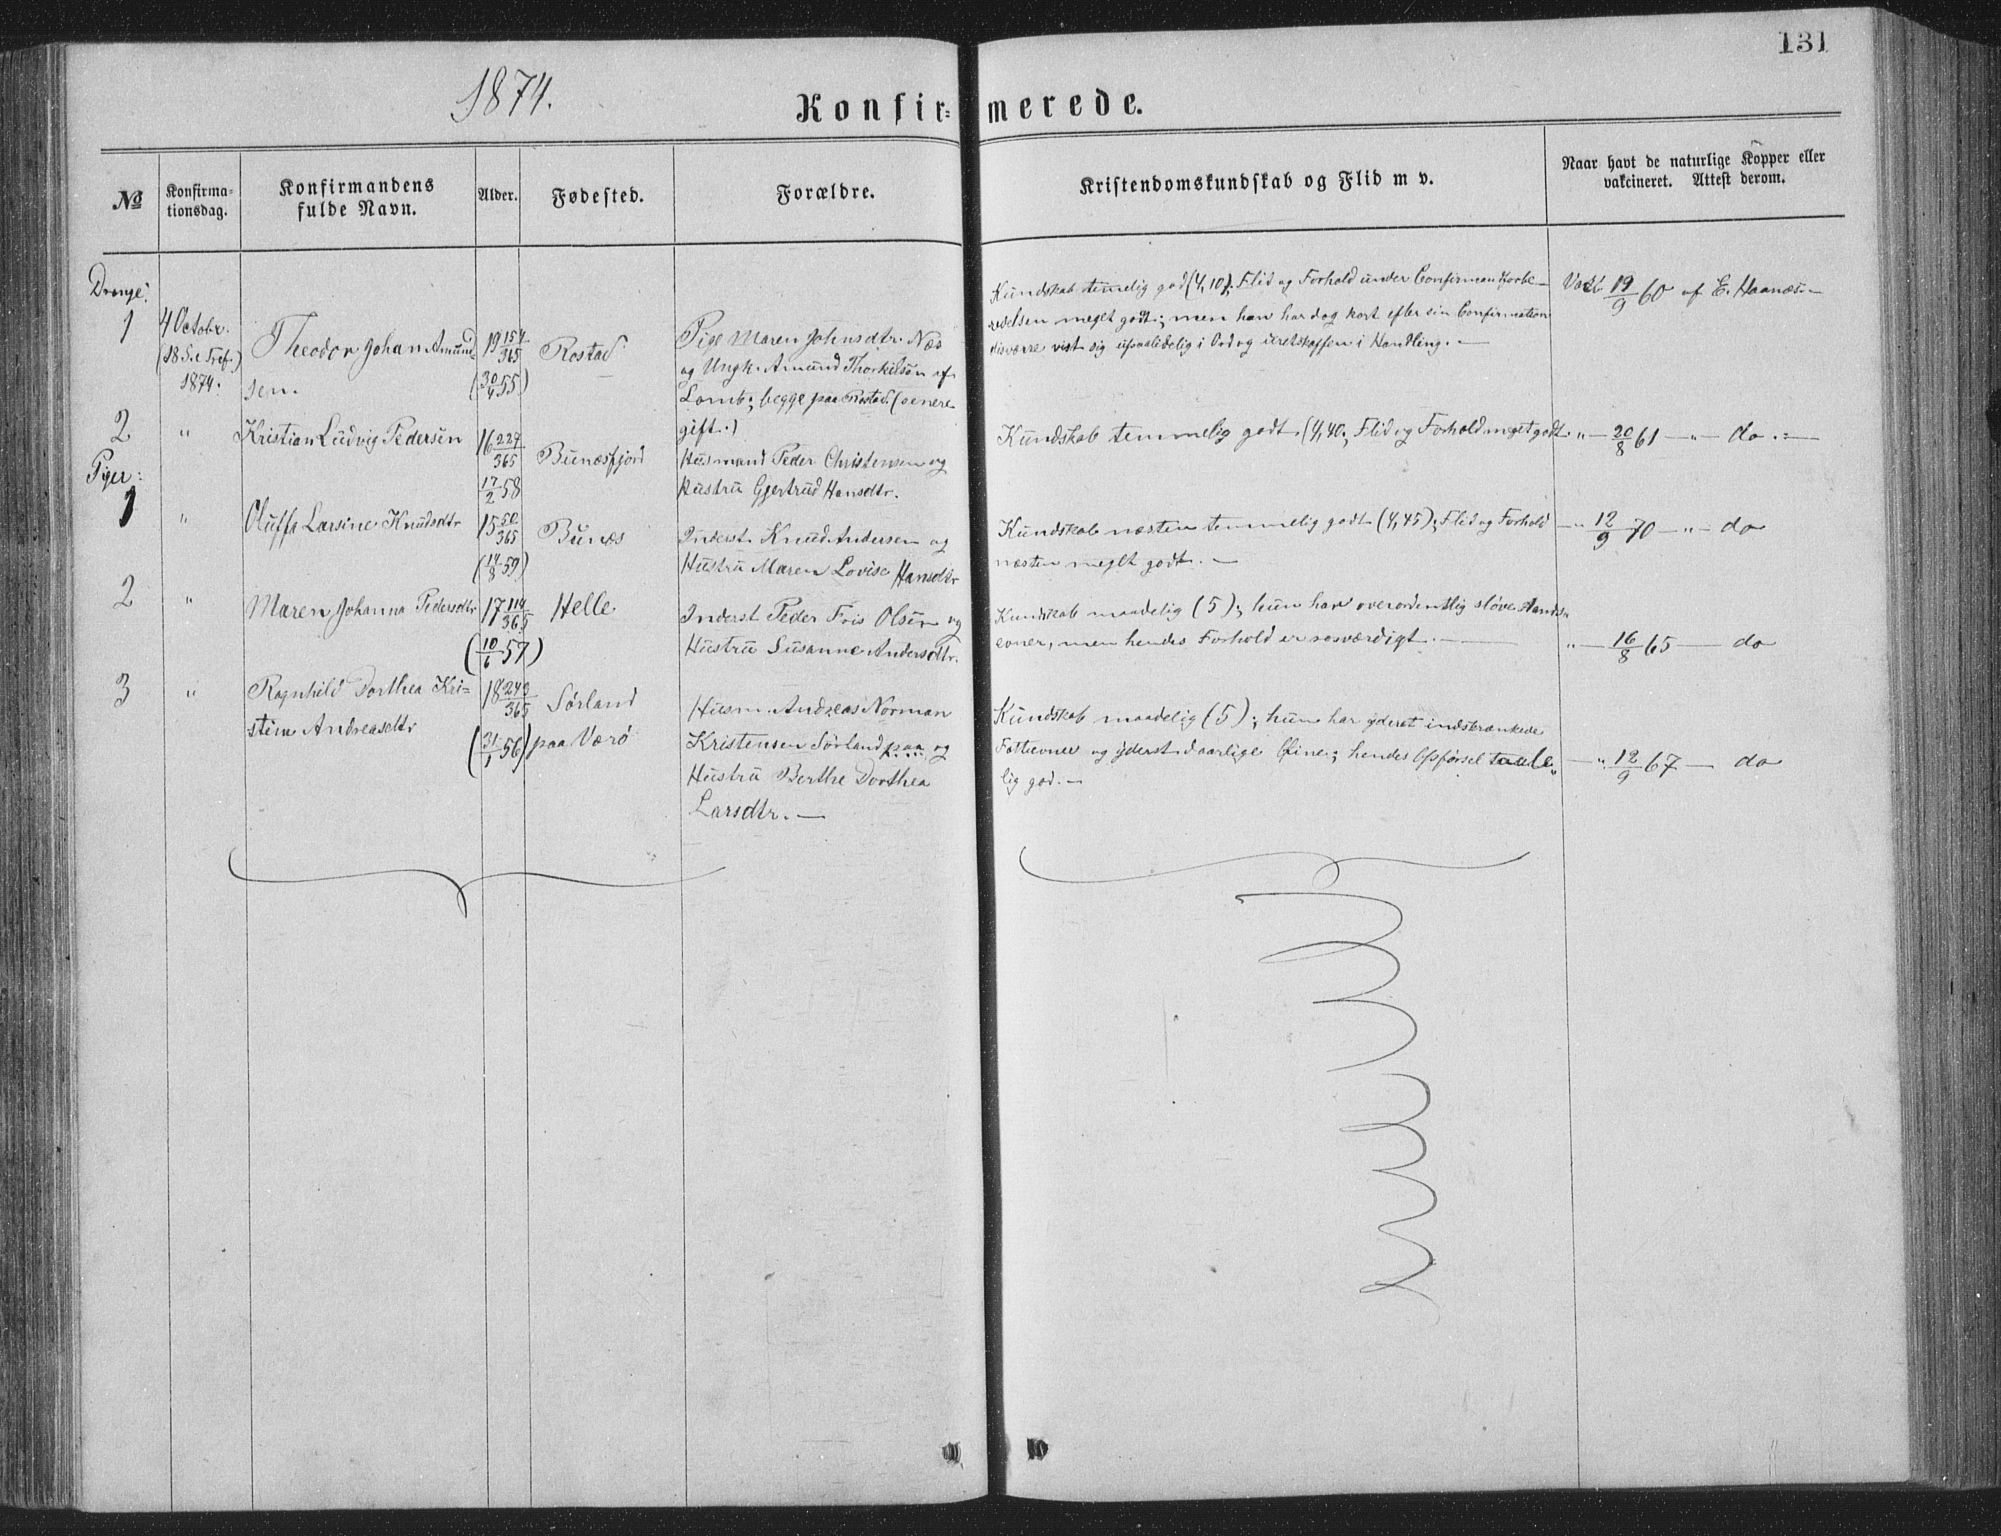 131
1874.
Konfir= merede.
№
Konfirma-
tionsdag.
Konfirmandens
fulde Navn.
Alder.
Fødested.
Forældre.
Kristendomskundskab og Flid m v.
Naar havt de naturlige Kopper eller
vakcineret. Attest derom.
Drenge:
1
4 Octobr.
(18 S. e. Tref.)
1874.
Theodor Johan Amund
sen.
19 154/365
(30/4 55)
Rostad
Pige Maren Johnsdtr. Næs
og Ungk. Amund Thorkilsøn af
Lomb; begge paa Rostad. (senere
gift.)
Kundskab temmelig god (4,10); Flid og Forhold under Confirmandforbe-
redelsen meget godt; men han har dog kort efter sin Confirmation
disværre vist sig upaalidelig i Ord og uretskaffen i Handling. —
Vacc. 19/9 60 af E. Haanæs. —
2
"
Kristian Ludvig Pedersen
16 229/365
17/2 58
Bunæsfjord
Husmand Peder Christensen og
Hustru Gjertrud Hansdtr.
Kundskab temmelig godt. (4,40; Flid og Forhold meget godt.
" — 20/8 61 — " — do . —
Piger:
1
"
Oluffa Larsine Knudsdtr
15 50/365
(14/8 59)
Bunæs
Inderst. Knud Andersen og
Hustru Maren Lovise Hansdtr
Kundskab næsten temmelig godt (4,45); Flid og Forhold
næsten meget godt. —
— " 12/9 70 — " — do
2
"
Maren Johanna Pedersdtr
17 114/365
(10/6 57)
Helle
Inderst Peder Friis Olsen og
Hustru Susanne Andersdtr.
Kundskab maadelig (5); hun har overordentlig sløve Aands=
evner, men hendes Forhold er rosværdigt. —
" — 16/8 65 — do
3
"
Ragnhild Dorthea Kri=
stine Andreasdtr
18 243/365
(31/1 56)
Sørland
paa Værø
Husm. Andreas Norman
Kristensen Sørland paa og
Hustru Berthe Dorthea
Larsdtr. —
Kundskab maadelig (5); hun har yderst indskrænkede
Fatteevner og yderst daarlige Øine; hendes Opførsel taale„
lig god. —
— " 12/9 67 — do